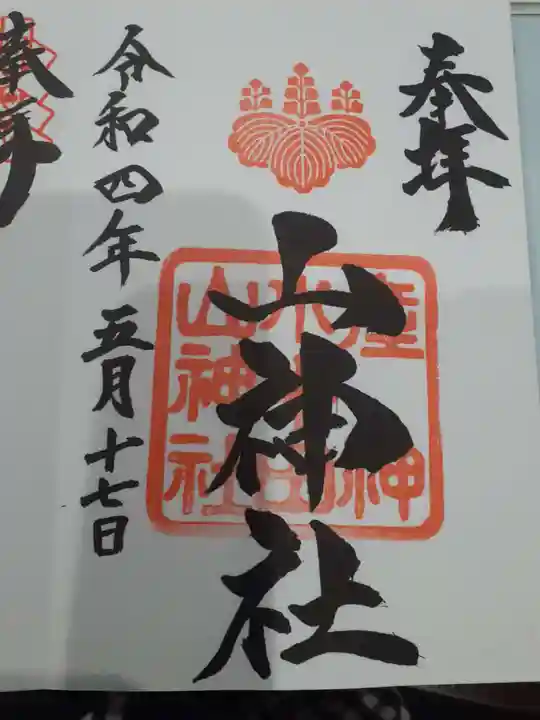 奉拝
山神社
令和四年五月十七日
奉拝
山神社